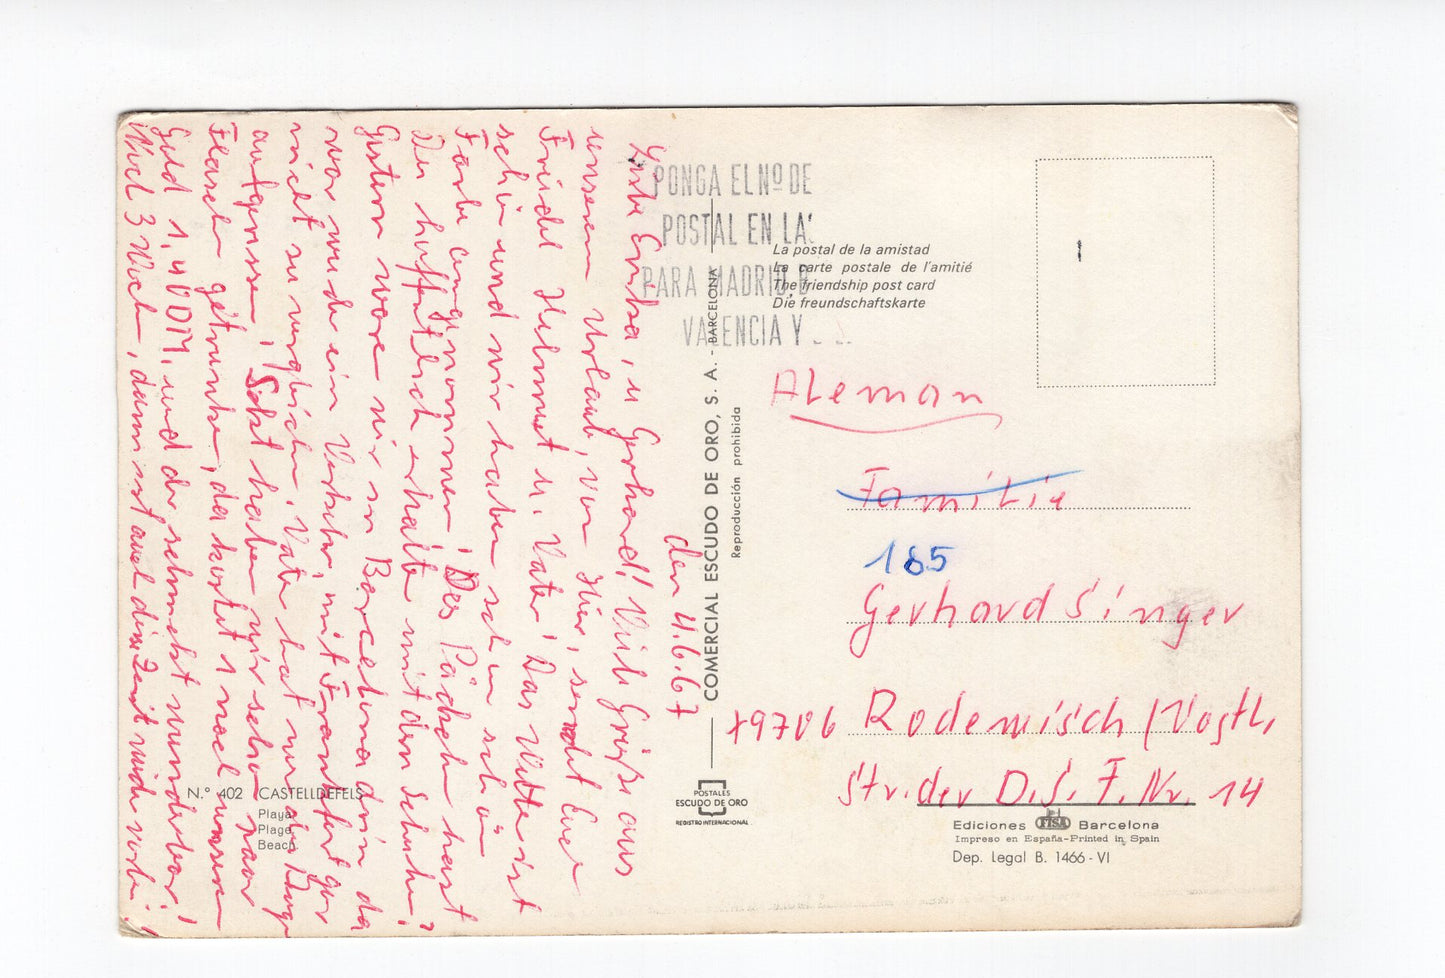 den 4.6.67
Liebe Erika, u Gerhard! Viele Grüße aus
unserem Urlaub, von Hier, sendet Euer
Friedel Helmut u. Vater! Das Wetter ist
schön und wir haben schon schön
Farbe angenommen! Das Päckchen hast
Du hoffentlich erhalten mit den Schuhen!
Gestern waren wir in Barcelona drin da
war wieder ein Verkehr, mit Frankfurt gar
nicht zu vergleichen. Vater hat nur die Augen
aufgerissen, Sekt haben wir schon paar
Flaschen getrunken, da kostet 1 nach unserem
Geld 1,40 DM, und der schmeckt wunderbar!
Noch 3 Wochen, dann ist auch diese Zeit wieder vorbei!
PONGA EL Nº DE
POSTAL EN LA
PARA MADRID, B
VALENCIA Y
La postal de la amistad
La carte postale de l'amitié
The friendship post card
Die freundschaftskarte
Aleman
Familie
185
Gerhard Singer
79706 Rodewisch /Vogtl,
Str. der D.S.F. Nr. 14
COMERCIAL ESCUDO DE ORO, S. A. - BARCELONA
Reproducción prohibida
POSTALES
ESCUDO DE ORO
REGISTRO INTERNACIONAL
N.° 402 CASTELLDEFELS
Playa
Plage
Beach.
Ediciones FISA Barcelona
Impreso en España-Printed in Spain
Dep. Legal B. 1466 - VI